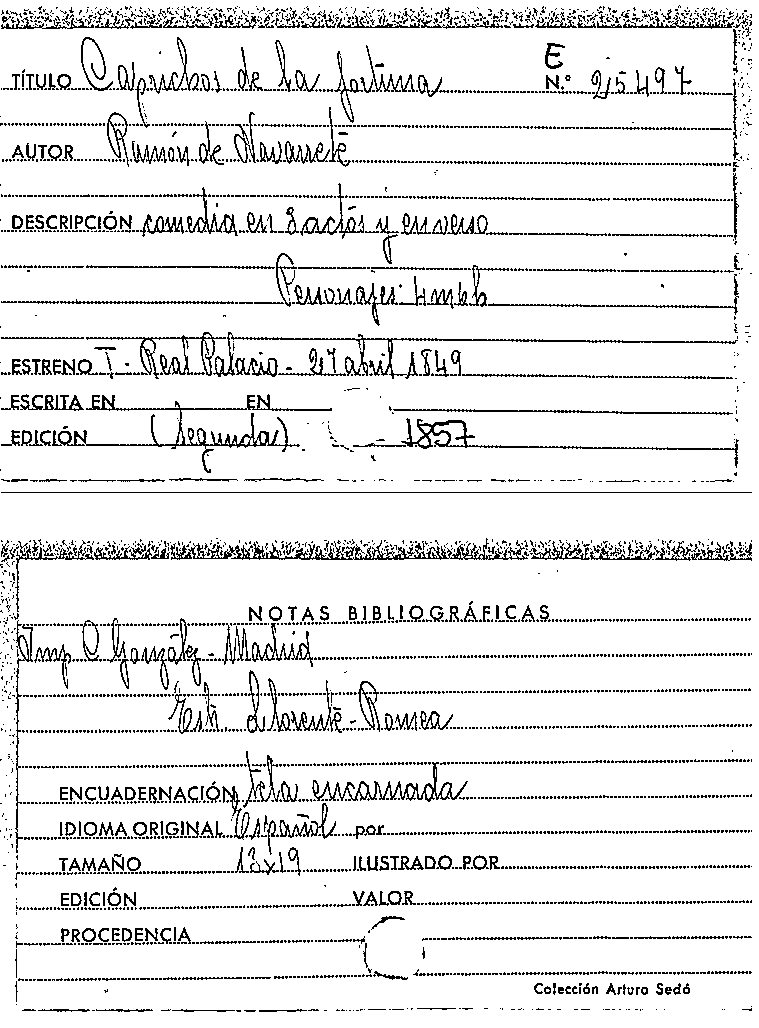 E
TÍTULO Caprichos de la fortuna N.º 25497
AUTOR Ramón de Navarrete
DESCRIPCIÓN comedia en 3 actos y en verso
Personajes: 4m6h
ESTRENO T - Real Palacio - 27 abril 1849
ESCRITA EN EN
EDICIÓN (Segunda) 1857
NOTAS BIBLIOGRÁFICAS
Imp C González - Madrid
Est. Llorente - Romea
ENCUADERNACIÓN tela encarnada
IDIOMA ORIGINAL Español por
TAMAÑO 13x19 ILUSTRADO POR
EDICIÓN VALOR
PROCEDENCIA
Colección Arturo Sedó